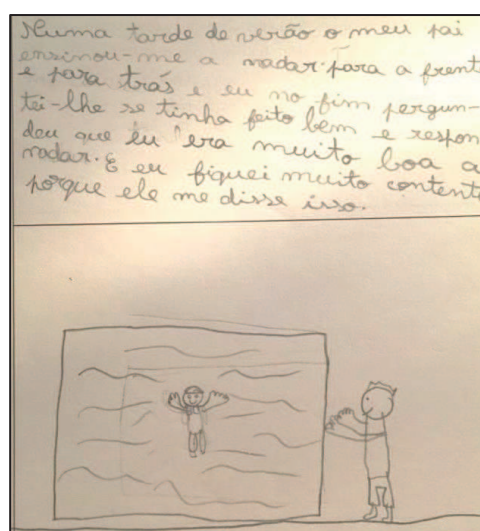 Numa tarde de verão o meu pai
ensinou-me a nadar para a frent
e para trás e eu no fim pergun-
tei-lhe se tinha feito bem e respon
deu que eu era muito boa a
nadar. E eu fiquei muito content
porque ele me disse isso.